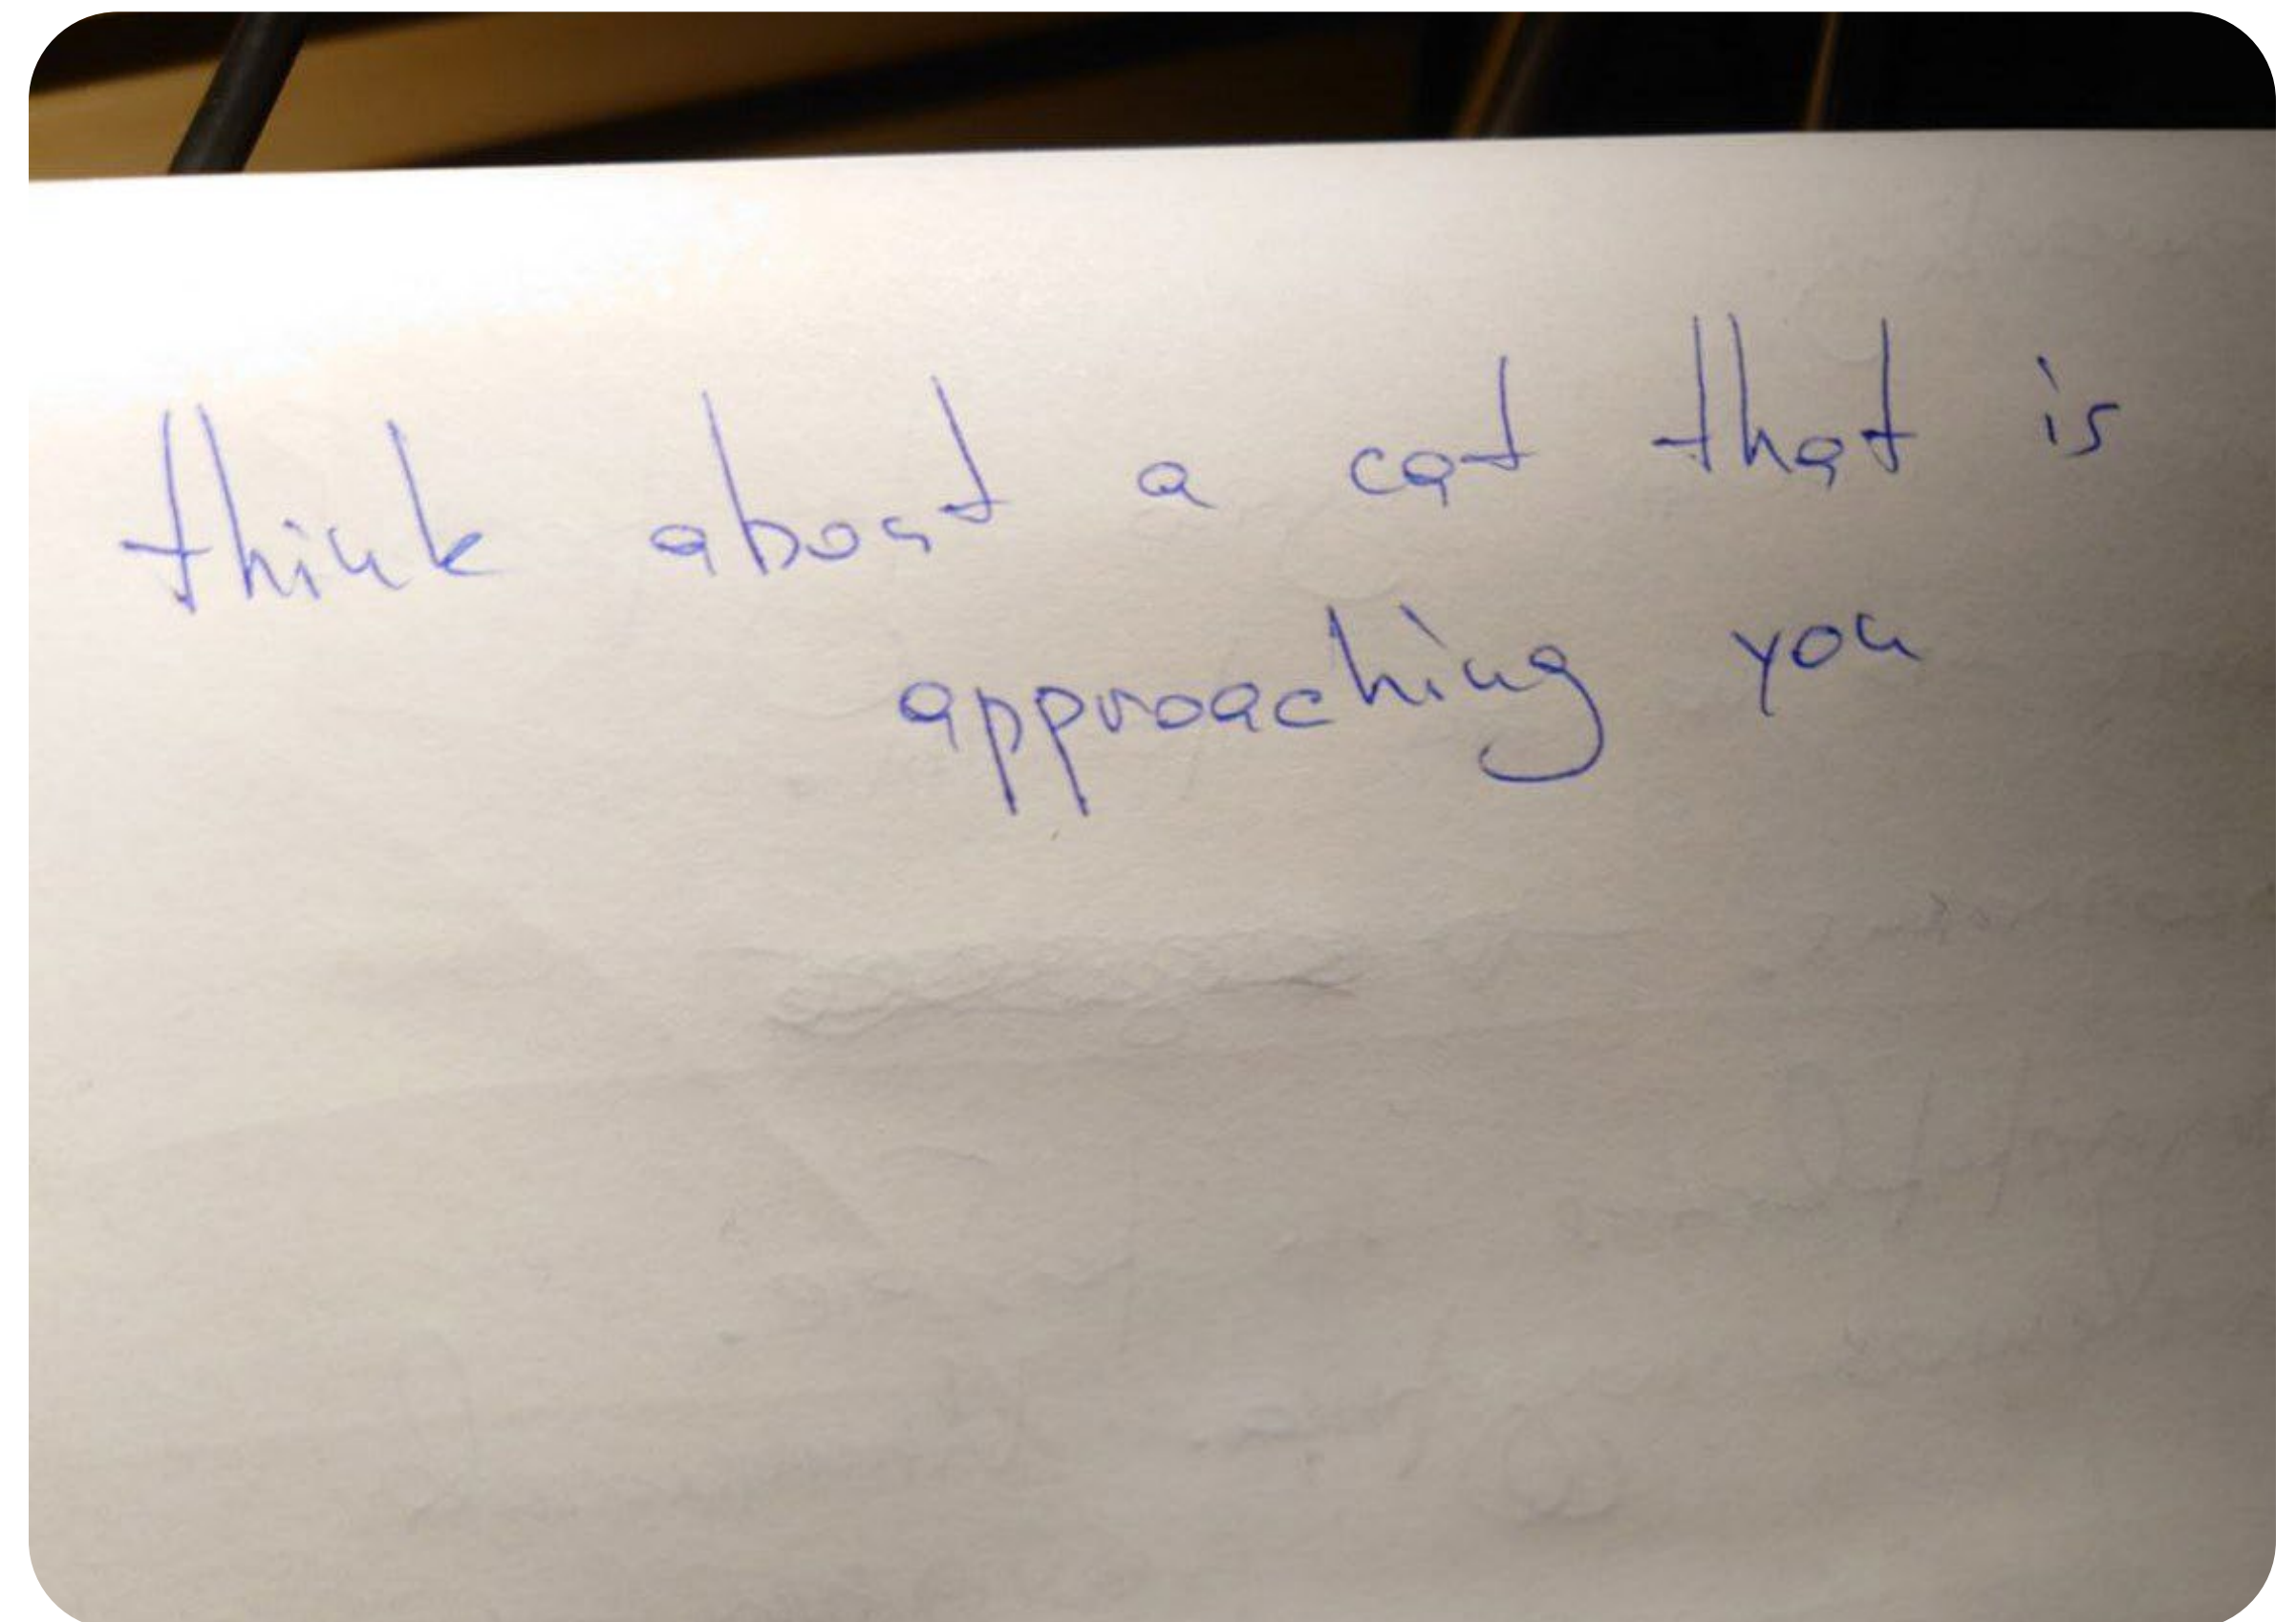 think about a cat that is
approaching you